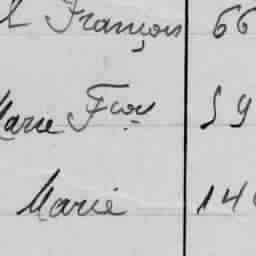 François 66
Marie Fçois 59
Marie 14